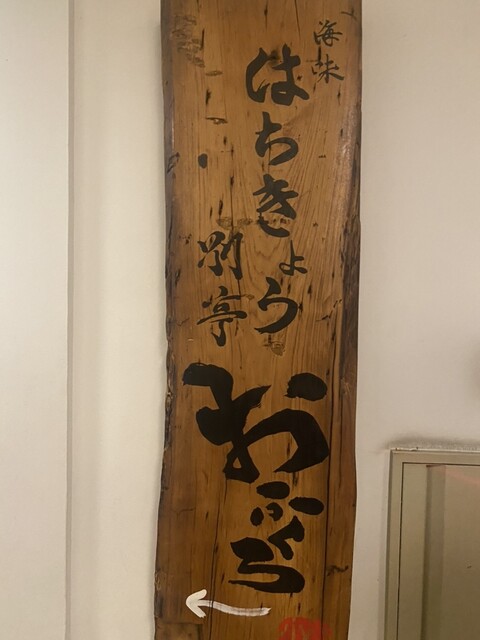 海味
はちきょう
別亭
おふくろ